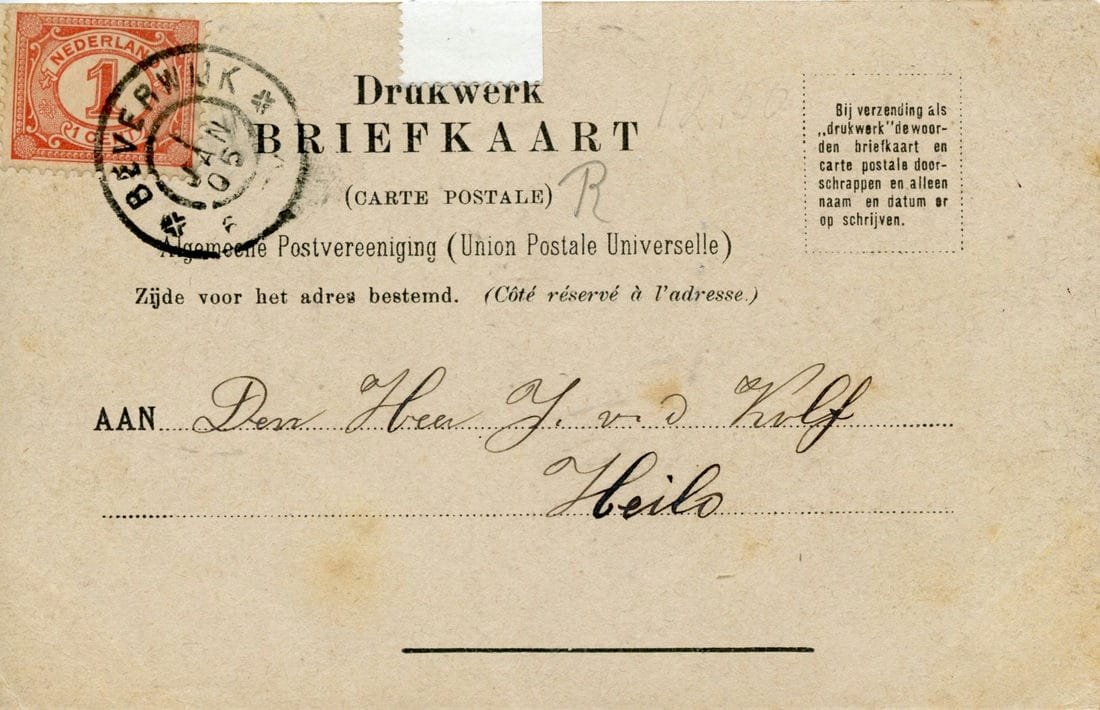 NEDERLAND
1
1 CENT
BEVERWIJK
JAN
05
Drukwerk
BRIEFKAART
(CARTE POSTALE)
R
Algemeene Postvereeniging (Union Postale Universelle)
Zijde voor het adres bestemd. (Côté réservé à l'adresse.)
Bij verzending als
„drukwerk" de woor-
den briefkaart en
carte postale door-
schrappen en alleen
naam en datum er
op schrijven.
AAN Den Heer J. v. d Kolf
Heilo